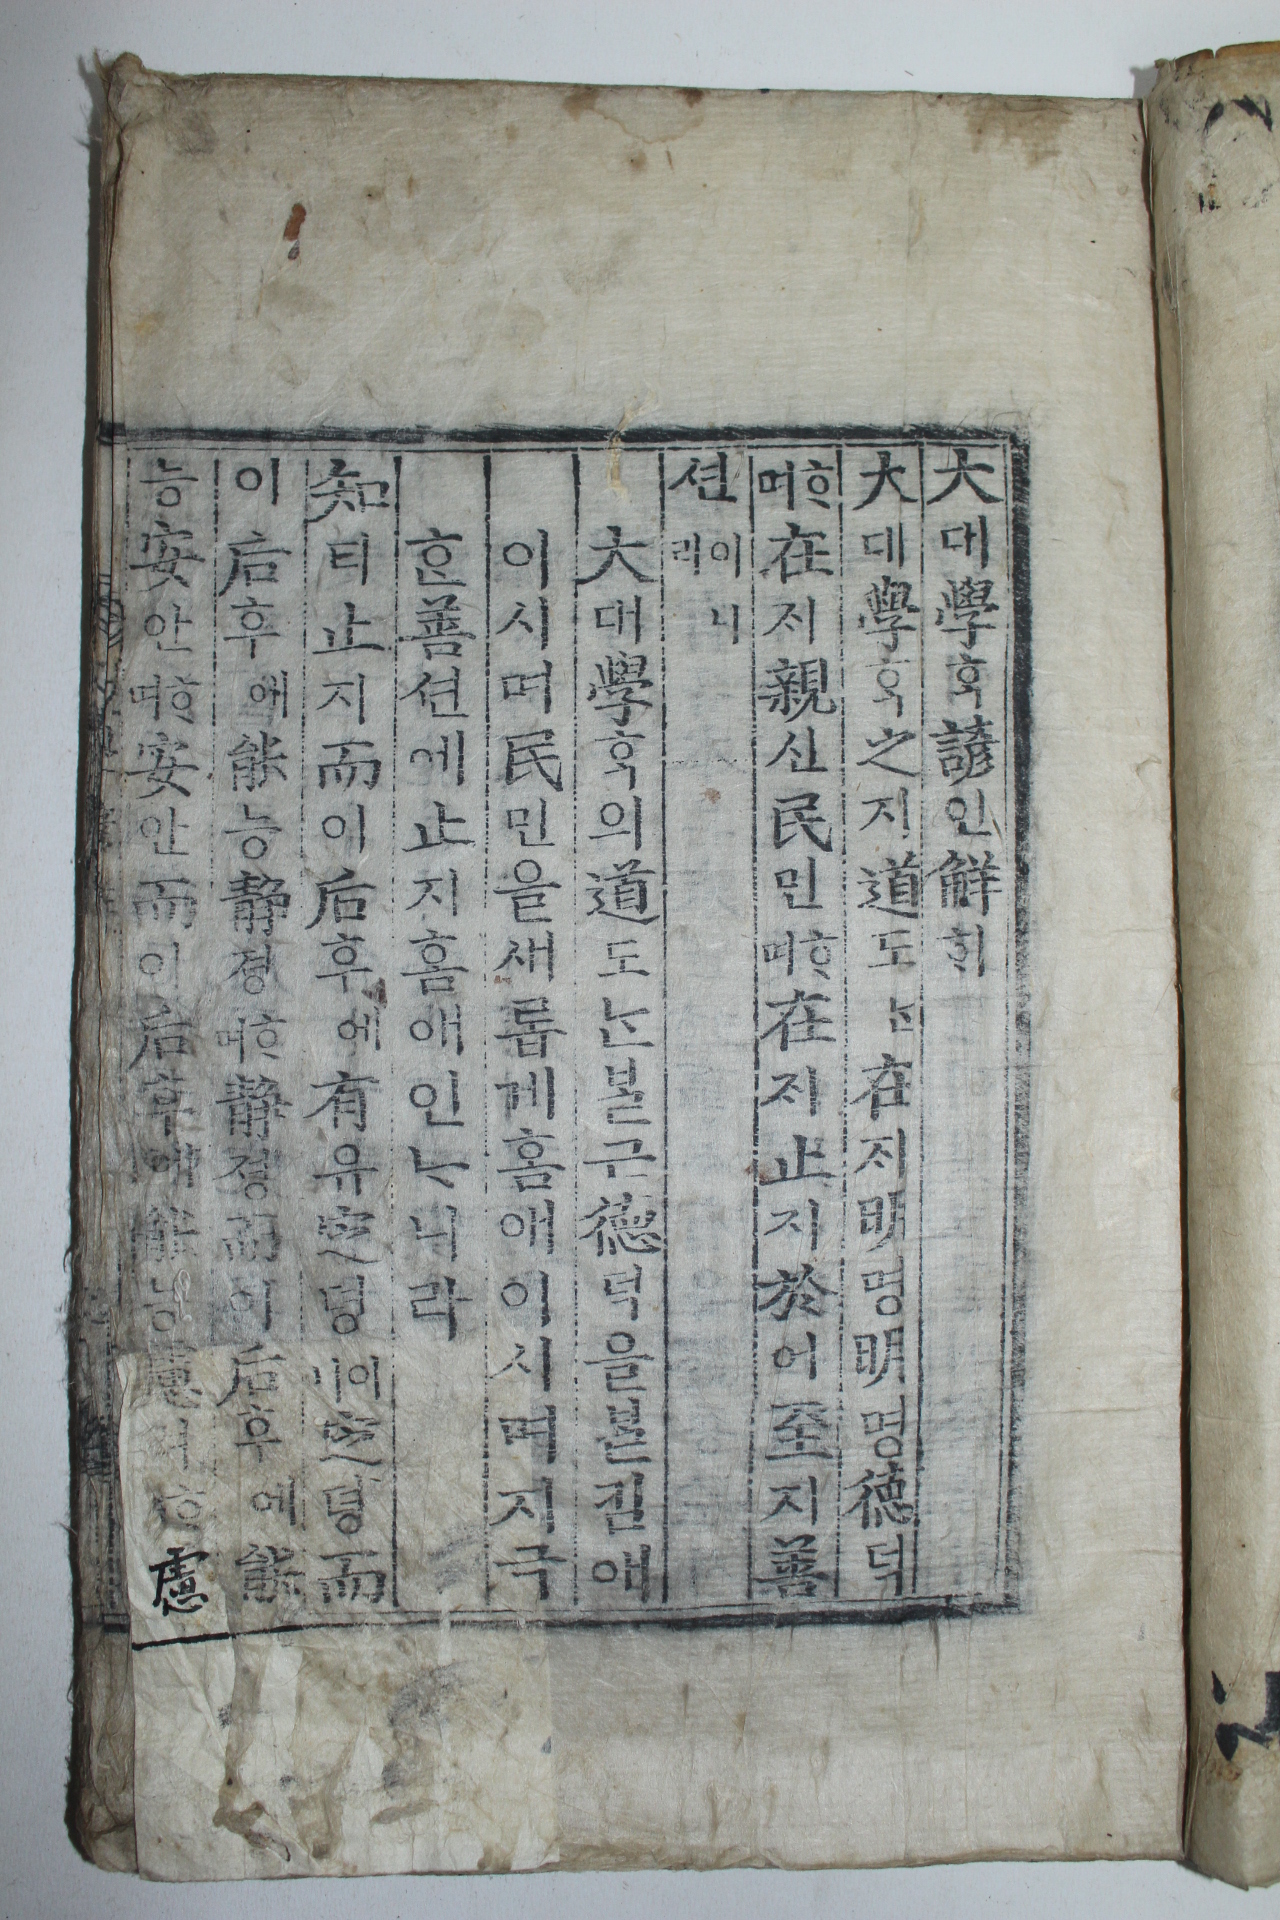 大대學ᄒᆞᆨ諺언解ᄒᆡ
大대學ᄒᆞᆨ之지道도ᄂᆞᆫ在ᄌᆡ明명明명德덕
ᄒᆞ며在ᄌᆡ親신民민ᄒᆞ며在ᄌᆡ止지於어至지善
션이니라
大대學ᄒᆞᆨ의道도ᄂᆞᆫᄇᆞᆯ근德덕을ᄇᆞᆯ킴애
이시며民민을새롭게홈애이시며지극
ᄒᆞᆫ善션에止지홈애인ᄂᆞ니라
知디止지而이后후에有유定뎡이니定뎡而
이后후에能능靜졍ᄒᆞ며靜졍而이后후에能
능安안ᄒᆞ며安안而이后후에能능慮려ᄒᆞ
慮